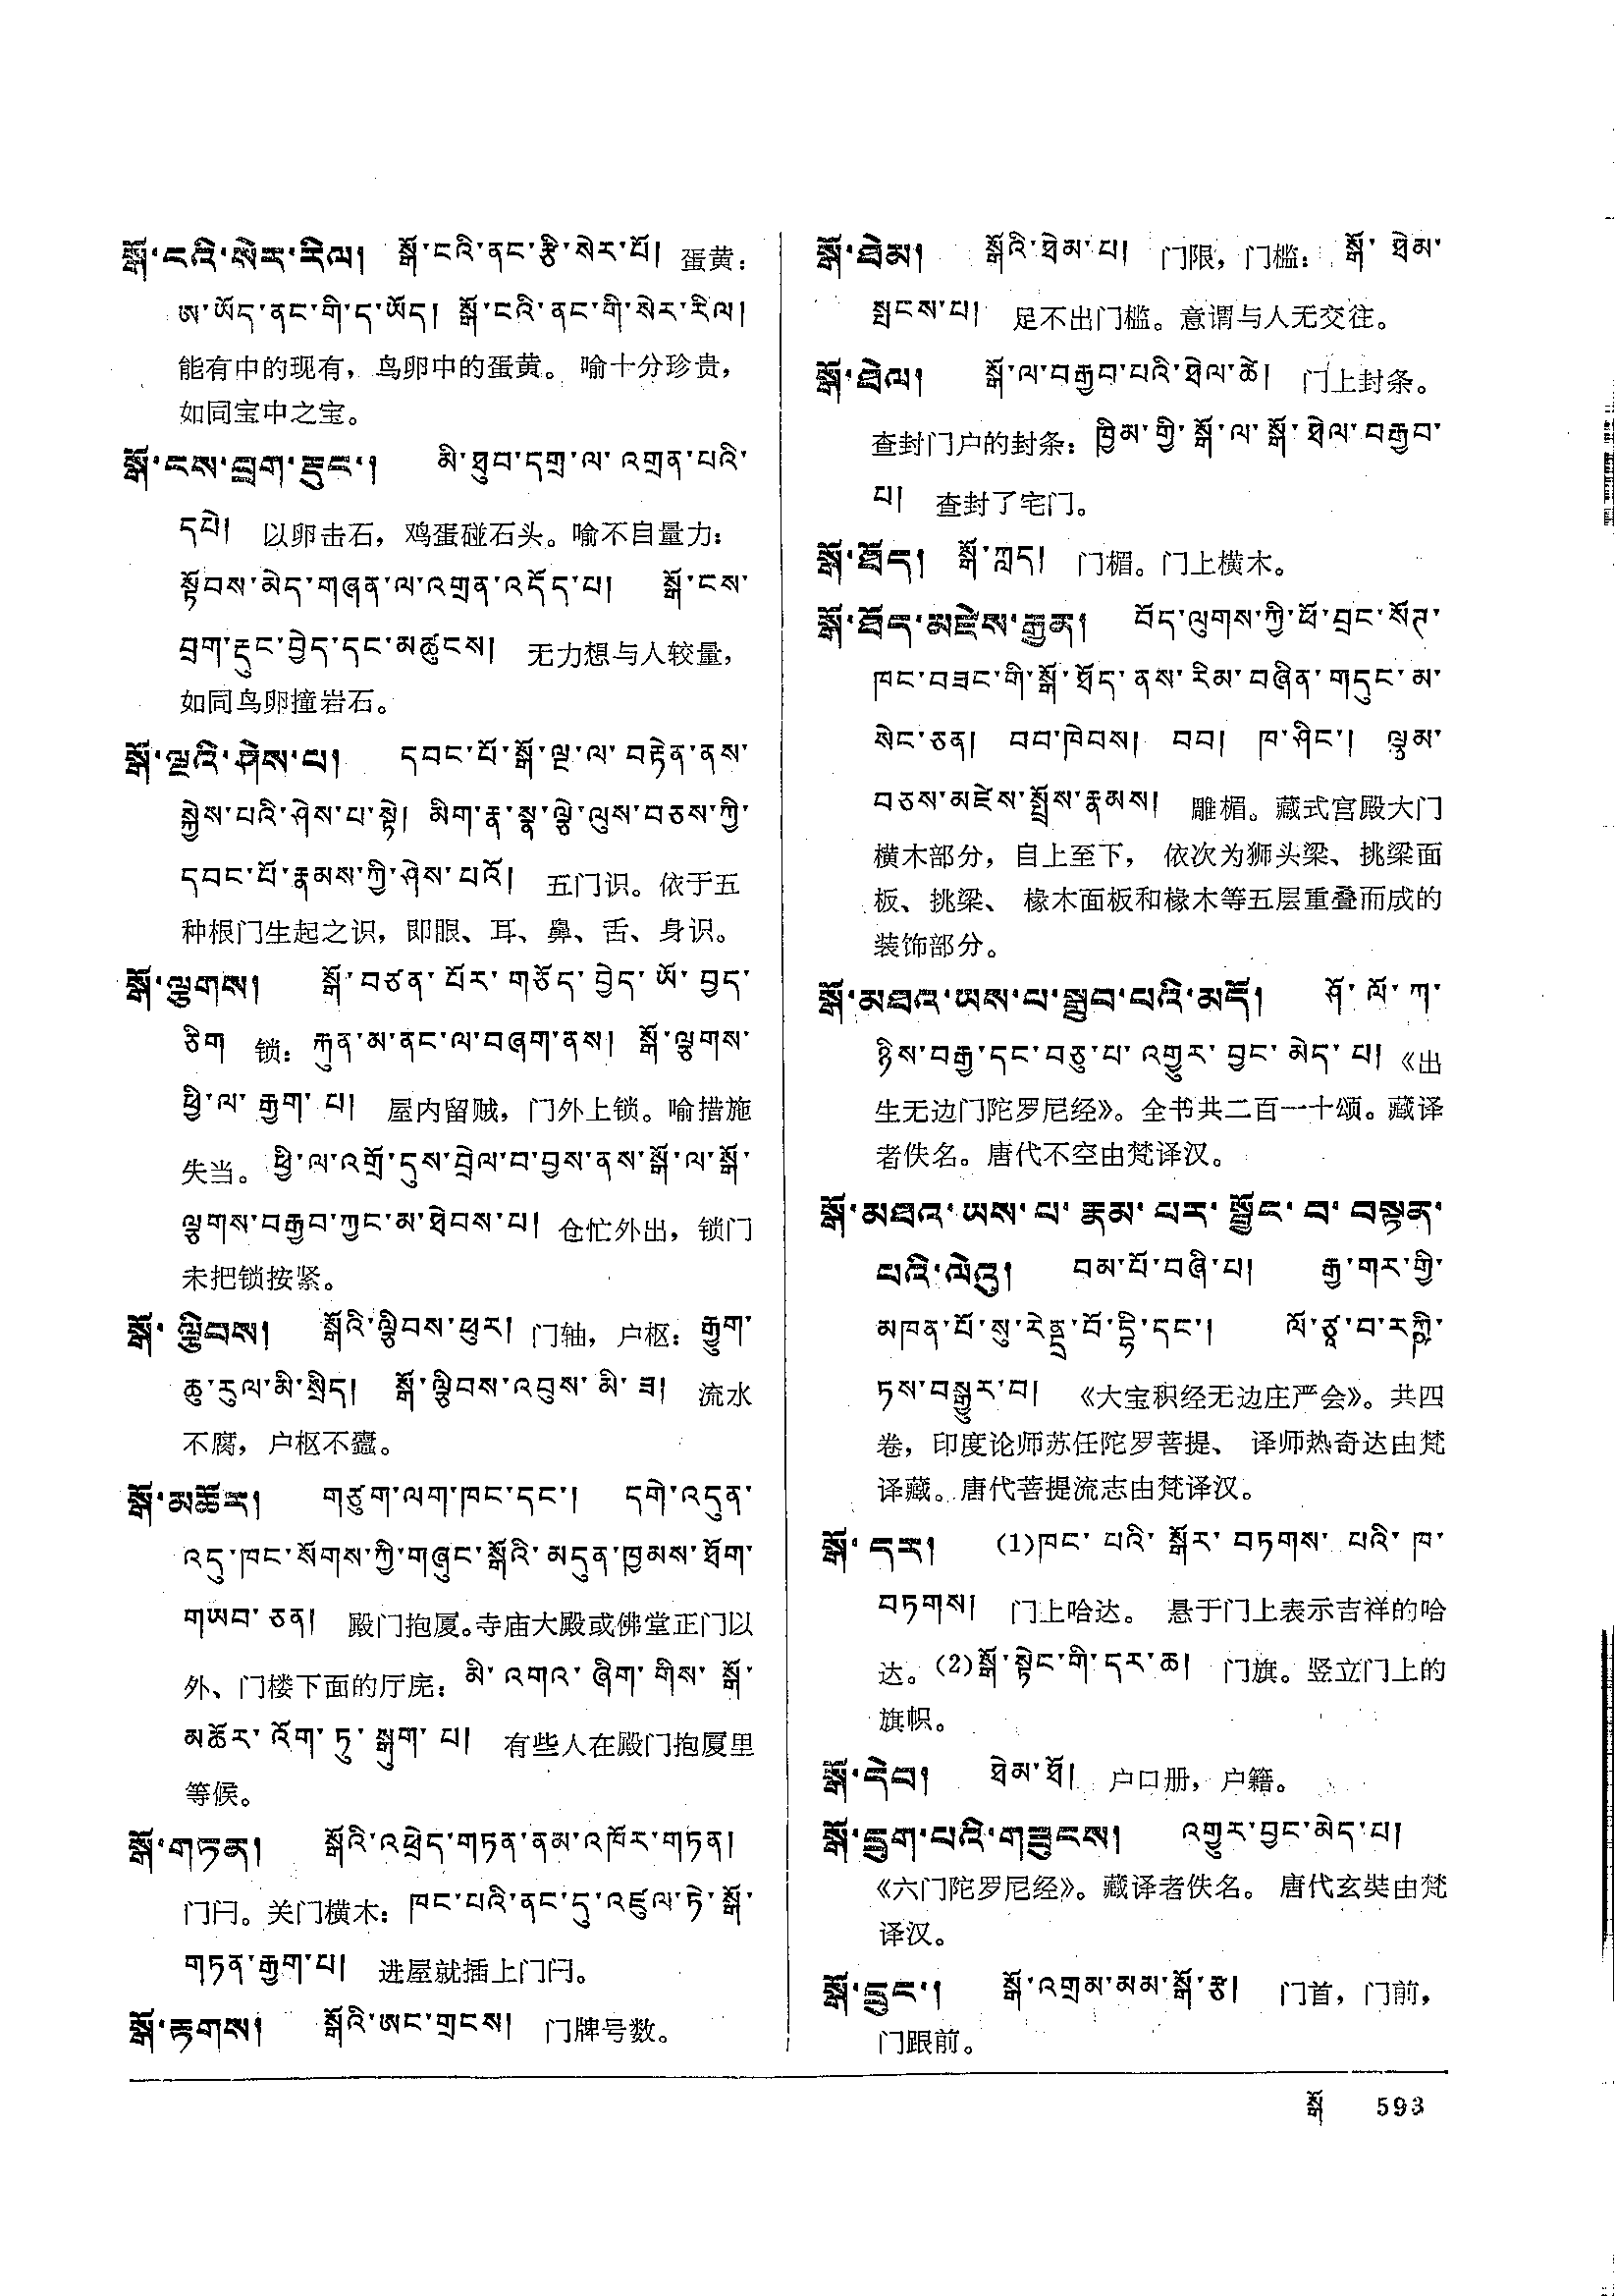 སྒོ་ངའི་སེར་རིལ། སྒོ་ངའི་ནང་རྩི་སེར་པོ། 蛋黄：
ཨ་ཡོད་ནང་གི་ད་ཡོད། སྒོ་ངའི་ནང་གི་སེར་རིལ།
能有中的现有，鸟卵中的蛋黄。喻十分珍贵，
如同宝中之宝。
སྒོ་ངས་བྲག་རྡུང་། མི་ཐུབ་དགྲ་ལ་འགྲན་པའི་
དཔེ། 以卵击石，鸡蛋碰石头。喻不自量力：
སྟོབས་མེད་གཞན་ལ་འགྲན་འདོད་པ། སྒོ་ངས་
བྲག་རྡུང་བྱེད་དང་མཚུངས། 无力想与人较量，
如同鸟卵撞岩石。
སྒོ་ལྔའི་ཤེས་པ། དབང་པོ་སྒོ་ལྔ་ལ་བརྟེན་ནས་
སྐྱེས་པའི་ཤེས་པ་སྟེ། མིག་རྣ་སྣ་ལྕེ་ལུས་བཅས་ཀྱི་
དབང་པོ་རྣམས་ཀྱི་ཤེས་པའོ། 五门识。依于五
种根门生起之识，即眼、耳、鼻、舌、身识。
སྒོ་ལྕགས། སྒོ་བཙན་པོར་གཅོད་བྱེད་ཡོ་བྱད་
ཅིག 锁：རྐུན་མ་ནང་ལ་བཞག་ནས། སྒོ་ལྕགས་
ཕྱི་ལ་རྒྱག་པ། 屋内留贼，门外上锁。喻措施
失当。ཕྱི་ལ་འགྲོ་དུས་བྲེལ་བ་བྱས་ནས་སྒོ་ལ་སྒོ་
ལྕགས་བརྒྱབ་ཀྱང་མ་ཐེབས་པ། 仓忙外出，锁门
未把锁按紧。
སྒོ་ལྕིབས། སྒོའི་ལྕིབས་ཕུར། 门轴，户枢：རྒྱུག་
ཆུ་རུལ་མི་སྲིད། སྒོ་ལྕིབས་འབུས་མི་ཟ། 流水
不腐，户枢不蠹。
སྒོ་མཆོར། གཙུག་ལག་ཁང་དང་། དགེ་འདུན་
འདུ་ཁང་སོགས་ཀྱི་གཞུང་སྒོའི་མདུན་ཁྱམས་ཐོག་
གཡབ་ཅན། 殿门抱厦。寺庙大殿或佛堂正门以
外、门楼下面的厅庑：མི་འགའ་ཞིག་གིས་སྒོ་
མཆོར་འོག་ཏུ་སྒུག་པ། 有些人在殿门抱厦里
等候。
སྒོ་གཏན། སྒོའི་འཕྲེད་གཏན་ནམ་འཁོར་གཏན།
门闩。关门横木：ཁང་པའི་ནང་དུ་འཛུལ་ཏེ་སྒོ་
གཏན་རྒྱག་པ། 进屋就插上门闩。
སྒོ་རྟགས། སྒོའི་ཨང་གྲངས། 门牌号数。
སྒོ་ཐེམ། སྒོའི་ཐེམ་པ། 门限，门槛：སྒོ་ཐེམ་
སྤངས་པ། 足不出门槛。意谓与人无交往。
སྒོ་ཐེལ། སྒོ་ལ་བརྒྱབ་པའི་ཐེལ་ཚེ། 门上封条。
查封门户的封条：ཁྱིམ་གྱི་སྒོ་ལ་སྒོ་ཐེལ་བརྒྱབ་
པ། 查封了宅门。
སྒོ་ཐོད། སྒོ་ཀླད། 门楣。门上横木。
སྒོ་ཐོད་མཛེས་རྒྱན། བོད་ལུགས་ཀྱི་ཕོ་བྲང་སོཊ་
ཁང་བཟང་གི་སྒོ་ཐོད་ནས་རིམ་བཞིན་གདུང་མ་
སེང་ཅན། བབ་ཁེབས། བབ། ཁ་ཤིང་། ལྕམ་
བཅས་མཛེས་སྤྲོས་རྣམས། 雕楣。藏式宫殿大门
横木部分，自上至下，依次为狮头梁、挑梁面
板、挑梁、椽木面板和椽木等五层重叠而成的
装饰部分。
སྒོ་མཐའ་ཡས་པ་སྒྲུབ་པའི་མདོ། ཤོ་ལོ་ཀ་
ཉིས་བརྒྱ་དང་བཅུ་པ་འགྱུར་བྱང་མེད་པ།《出
生无边门陀罗尼经》。全书共二百一十颂。藏译
者佚名。唐代不空由梵译汉。
སྒོ་མཐའ་ཡས་པ་རྣམ་པར་སྦྱོང་བ་བསྟན་
པའི་ལེའུ། བམ་པོ་བཞི་པ། རྒྱ་གར་གྱི་
མཁན་པོ་སུ་རེནྡྲ་བོ་དྷི་དང་། ལོ་ཙྪ་བ་རཀྵི་
ཏས་བསྒྱུར་བ། 《大宝积经无边庄严会》。共四
卷，印度论师苏任陀罗菩提、译师热奇达由梵
译藏。唐代菩提流志由梵译汉。
སྒོ་དར། (1)ཁང་པའི་སྒོར་བཏགས་པའི་ཁ་
བཏགས། 门上哈达。悬于门上表示吉祥的哈
达。(2)སྒོ་སྟེང་གི་དར་ཆ། 门旗。竖立门上的
旗帜。
སྒོ་དེབ། ཐེམ་ཐོ། 户口册，户籍。
སྒོ་དྲུག་པའི་གཟུངས། འགྱུར་བྱང་མེད་པ།
《六门陀罗尼经》。藏译者佚名。唐代玄奘由梵
译汉。
སྒོ་དྲུང་། སྒོ་འགྲམ་མམ་སྒོ་རྩ། 门首，门前，
门跟前。
སྒོ 593